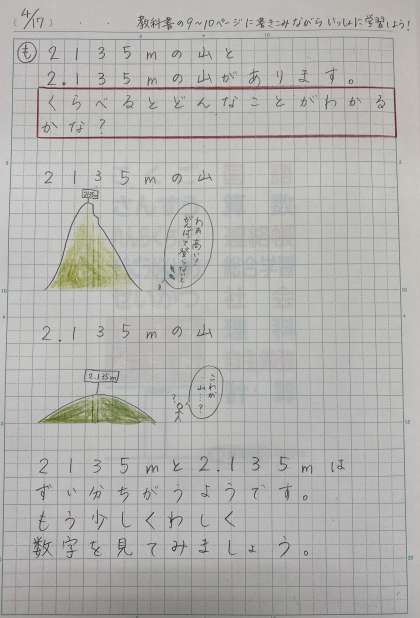 4/17 教科書の9~10ページに書きこみながらいっしょに学習しよう!
も 2135mの山と
2.135mの山があります。
くらべるとどんなことがわかる
かな?
2135mの山
2135m
わぁ高い!
がんばって登らないと
2.135mの山
2.135m
これが
山…?
?
2135mと2.135mは
ずい分ちがうようです。
もう少しくわしく
数字を見てみましょう。